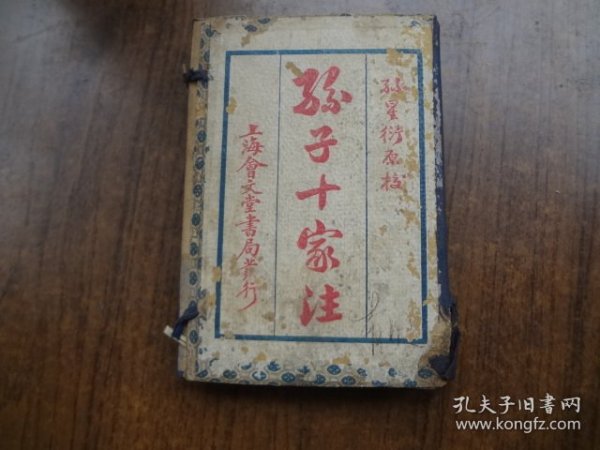 孫星衍原校
孫子十家注
上海會文堂書局發行
孔夫子旧书网
www.kongfz.com